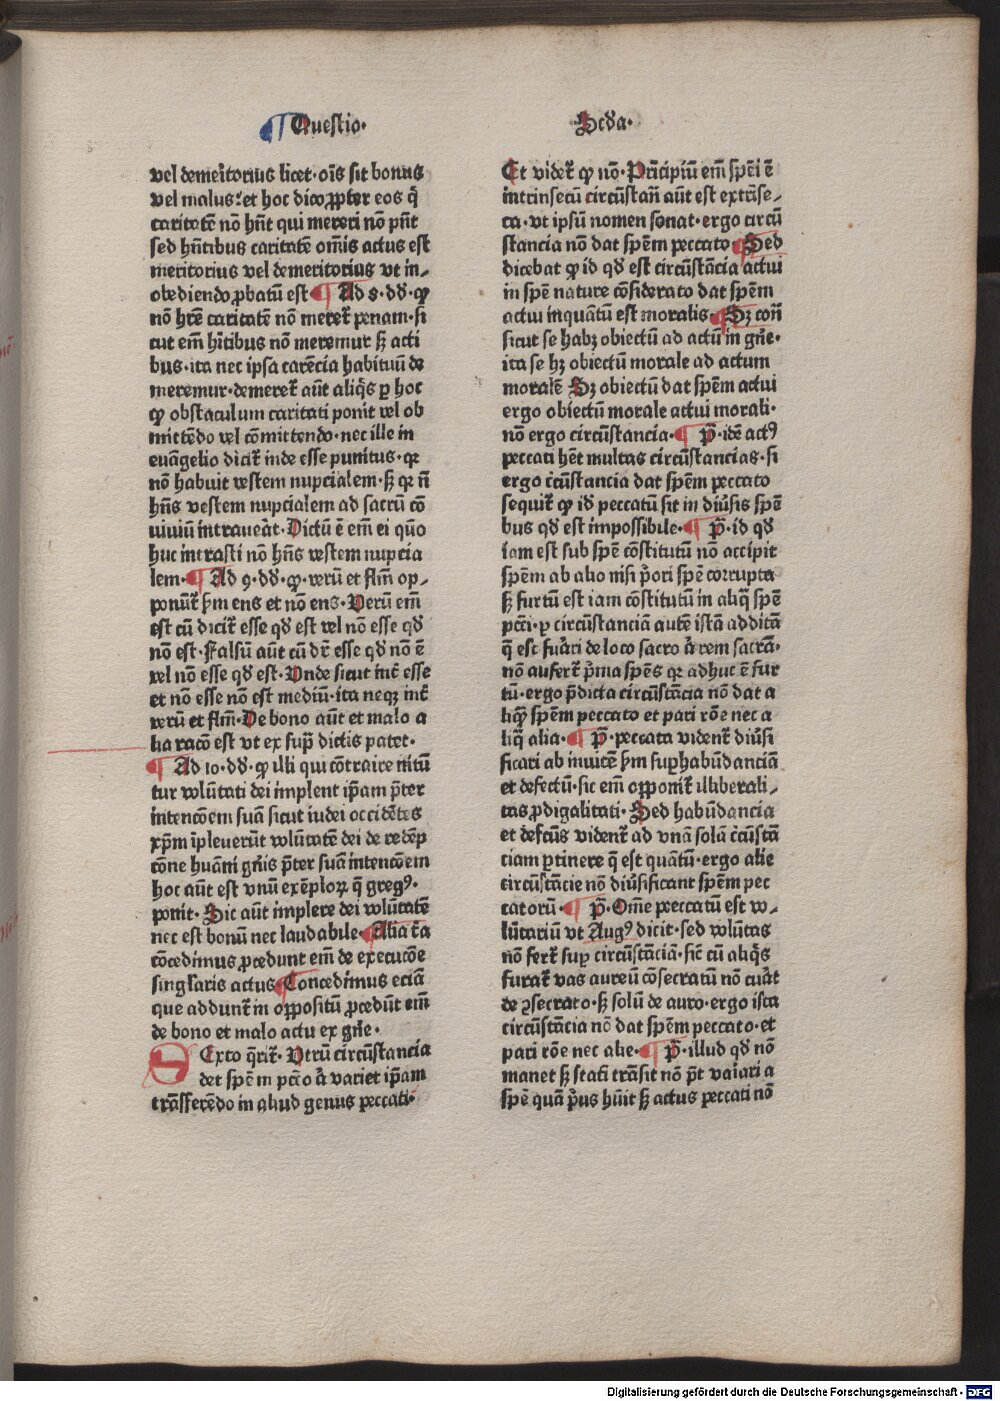 Questio·
Scďa·
vel demeritorius licet· oīs sit bonus
vel malus: et hoc dico ꝓpter eos q̄
caritatē nō hn̄t qui mereri nō pn̄t
sed hn̄tibus caritatē om̄is actus est
meritorius vel demeritorius vt in-
obediendo ꝓbatū est ¶ Ad 8· dd̄· ꝙ
nō hr̄e caritatē nō meret̄ penam· si
cut em̄ hītibus nō meremur sꝫ acti
bus· ita nec ipsa carēcia habituū de
meremur· demeret̄ aūt aliq̄s ꝑ hoc
ꝙ obstaculum caritati ponit vel ob
mittēdo vel cōmittendo· nec ille in
euāgelio dicit̄ inde esse punitus· qꝛ
nō habuit vestem nupcialem· sꝫ qꝛ n̄
hn̄s vestem nupcialem ad sacrū cō
uiuiū intraueāt· Dictū ē em̄ ei quō
huc intrasti nō hn̄s vestem nupcia
lem· ¶ Ad 9· dd̄· ꝙ· verū et flm̄ op-
ponūt̄ ẜm ens et nō ens· Verū em̄
est cū dicit̄ esse qd̄ est vel nō esse qd̄
nō est· Falsū aūt cū dr̄ esse qd̄ nō ē
vel nō esse qd̄ est· Vnde sicut int̄ esse
et nō esse nō est mediū· ita neqꝫ int̄
verū et flm̄· De bono aūt et malo a
lia racō est vt ex sup̄ dictis patet·
¶ Ad 10· dd̄· ꝙ illi qui cōtraire nitū
tur volūtati dei implent ip̄am p̄ter
intencōem suā sicut iudei occidētes
xp̄m īpleuerūt volūtatē dei de redēp
cōne huāni gn̄is p̄ter suā intencōem
hoc aūt est vnū exēploꝝ q̄ gregꝰ·
ponit· Sic aūt implere dei volūtatē
nec est bonū nec laudabile· ¶ Alia t̄a
cōcedimus ꝓcedunt em̄ de execucōe
singl̄aris actus ¶ Concedimus eciā
que addunt̄ in oꝓpositū ꝓcedūt em̄
de bono et malo actu ex gn̄e·
SExto q̄rit̄· Vtrū circūstancia
det spēm pctō ā variet ip̄am
trāsferēdo in aliud genus peccati·
Et videt̄ ꝙ nō· Prīcipiū em̄ spēi ē
intrinsecū circūstan̄ aūt est extrīse-
ca· vt ipsū nomen sonat· ergo circū
stancia nō dat spēm peccato ¶ Sed
dicebat ꝙ id qd̄ est circūstācia actui
in spē nature cōsiderato dat spēm
actui inquātū est moralis· ¶ Sꝫ con̄
sicut se habꝫ obiectū ad actū in gn̄e·
ita se hꝫ obiectū morale ad actum
moralē Sꝫ obiectū dat spēm actui
ergo obiectū morale actui morali·
nō ergo circūstancia· ¶ P̄· idē actꝰ
peccati hēt multas circūstancias· si
ergo c̄cūstancia dat spēm peccato
sequit̄ ꝙ id̄ peccatū sit in diūsis spē
bus qd̄ est impossibile· ¶ P̄· id qd̄
iam est sub spē cōstitutū nō accipit
spēm ab alio nisi p̄ori spē corrupta
sꝫ furtū est iam cōstitutū in aliq̄ spē
pctī· ꝑ circūstanciā autē istā additā
q̄ est fuāri de loco sacro ā rem sacrā·
nō aufert̄ p̄ma spēs qꝛ adhuc ē fur
tū· ergo p̄dicta circūstācia nō dat a
liqꝫ spēm peccato et pari rōe nec a
liq̄ alia· ¶ P̄· peccata vident̄ diūsi
ficari ab inuicē ẜm suꝑhabūdanciā
et defectū· sic em̄ oꝓponit̄ illiberali-
tas ꝓdigalitati· Sed habūdancia
et defcūs vident̄ ad vnā solā c̄cūstā
ciam ꝑtinere q̄ est quātū· ergo alie
circūstācie nō diūsificant spēm pec
catorū· ¶ P̄· Om̄e peccatū est vo-
lūtariū vt Augꝰ dicit· sed volūtas
nō fert̄ suꝑ circūstāciā· sic̄ cū aliq̄s
furat̄ vas aureū cōsecratū nō cuāt
de ꝯsecrato· sꝫ solū de auro· ergo ista
circūstācia nō dat spēm peccato· et
pari rōe nec alie· ¶ P̄· illud qd̄ nō
manet sꝫ statī trāsit nō p̄t vaīari a
spē quā p̄us hūit sꝫ actus peccati nō
Digitalisierung gefördert durch die Deutsche Forschungsgemeinschaft · DFG